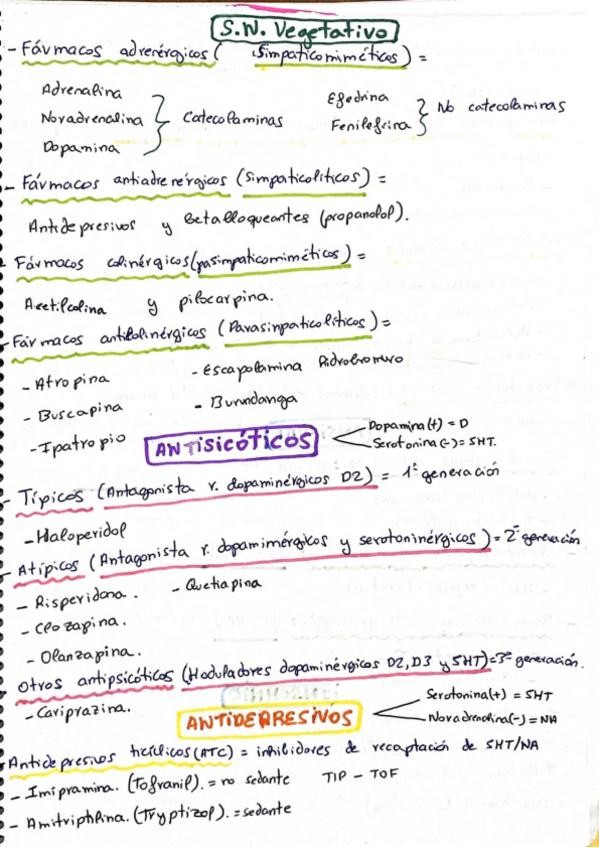 S.N. Vegetativo
- Fármacos adrenérgicos (simpaticomiméticos) =
Adrenalina
Noradrenalina } Catecolaminas
Dopamina
Efedrina
Fenilefrina } No catecolaminas
- Fármacos antiadrenérgicos (simpaticolíticos) =
Antidepresivos y betabloqueantes (propanolol).
Fármacos colinérgicos (pasimpaticomiméticos) =
Acetilcolina y pilocarpina.
- Fármacos anticolinérgicos (Parasinpaticolíticos) =
- Atropina
- Buscapina
- Ipatropio
- Escapolamina Hidrobromuro
- Burundanga
ANTISICÓTICOS
Dopamina (+) = D
Serotonina (-) = 5HT.
- Típicos (Antagonista r. dopaminérgicos D2) = 1ª generación
- Haloperidol
- Atípicos (Antagonista r. dopamimérgicos y serotoninérgicos) = 2ª generación
- Risperidona. - Quetiapina
- Clozapina.
- Olanzapina.
Otros antipsicóticos (Moduladores dopaminérgicos D2, D3 y 5HT) = 3ª generación.
- Cariprazina.
ANTIDEPRESIVOS
Serotonina (+) = 5HT
Novadrenalina (-) = NA
Antidepresivos tricíclicos (ATC) = inhibidores de recaptación de 5HT/NA
- Imipramina. (Tofranil). = no sedante TIP - TOF
- Amitriphlina. (Tryptizol). = sedante